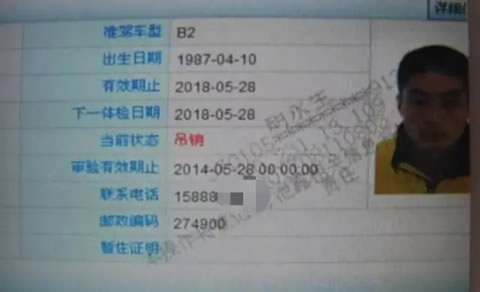 详细
准驾车型 B2
出生日期 1987-04-10
有效期止 2018-05-28
下一体检日期 2018-05-28
当前状态 吊销
审验有效期止 2014-05-28 00:00:00
联系电话 15888
邮政编码 274900
暂住证明